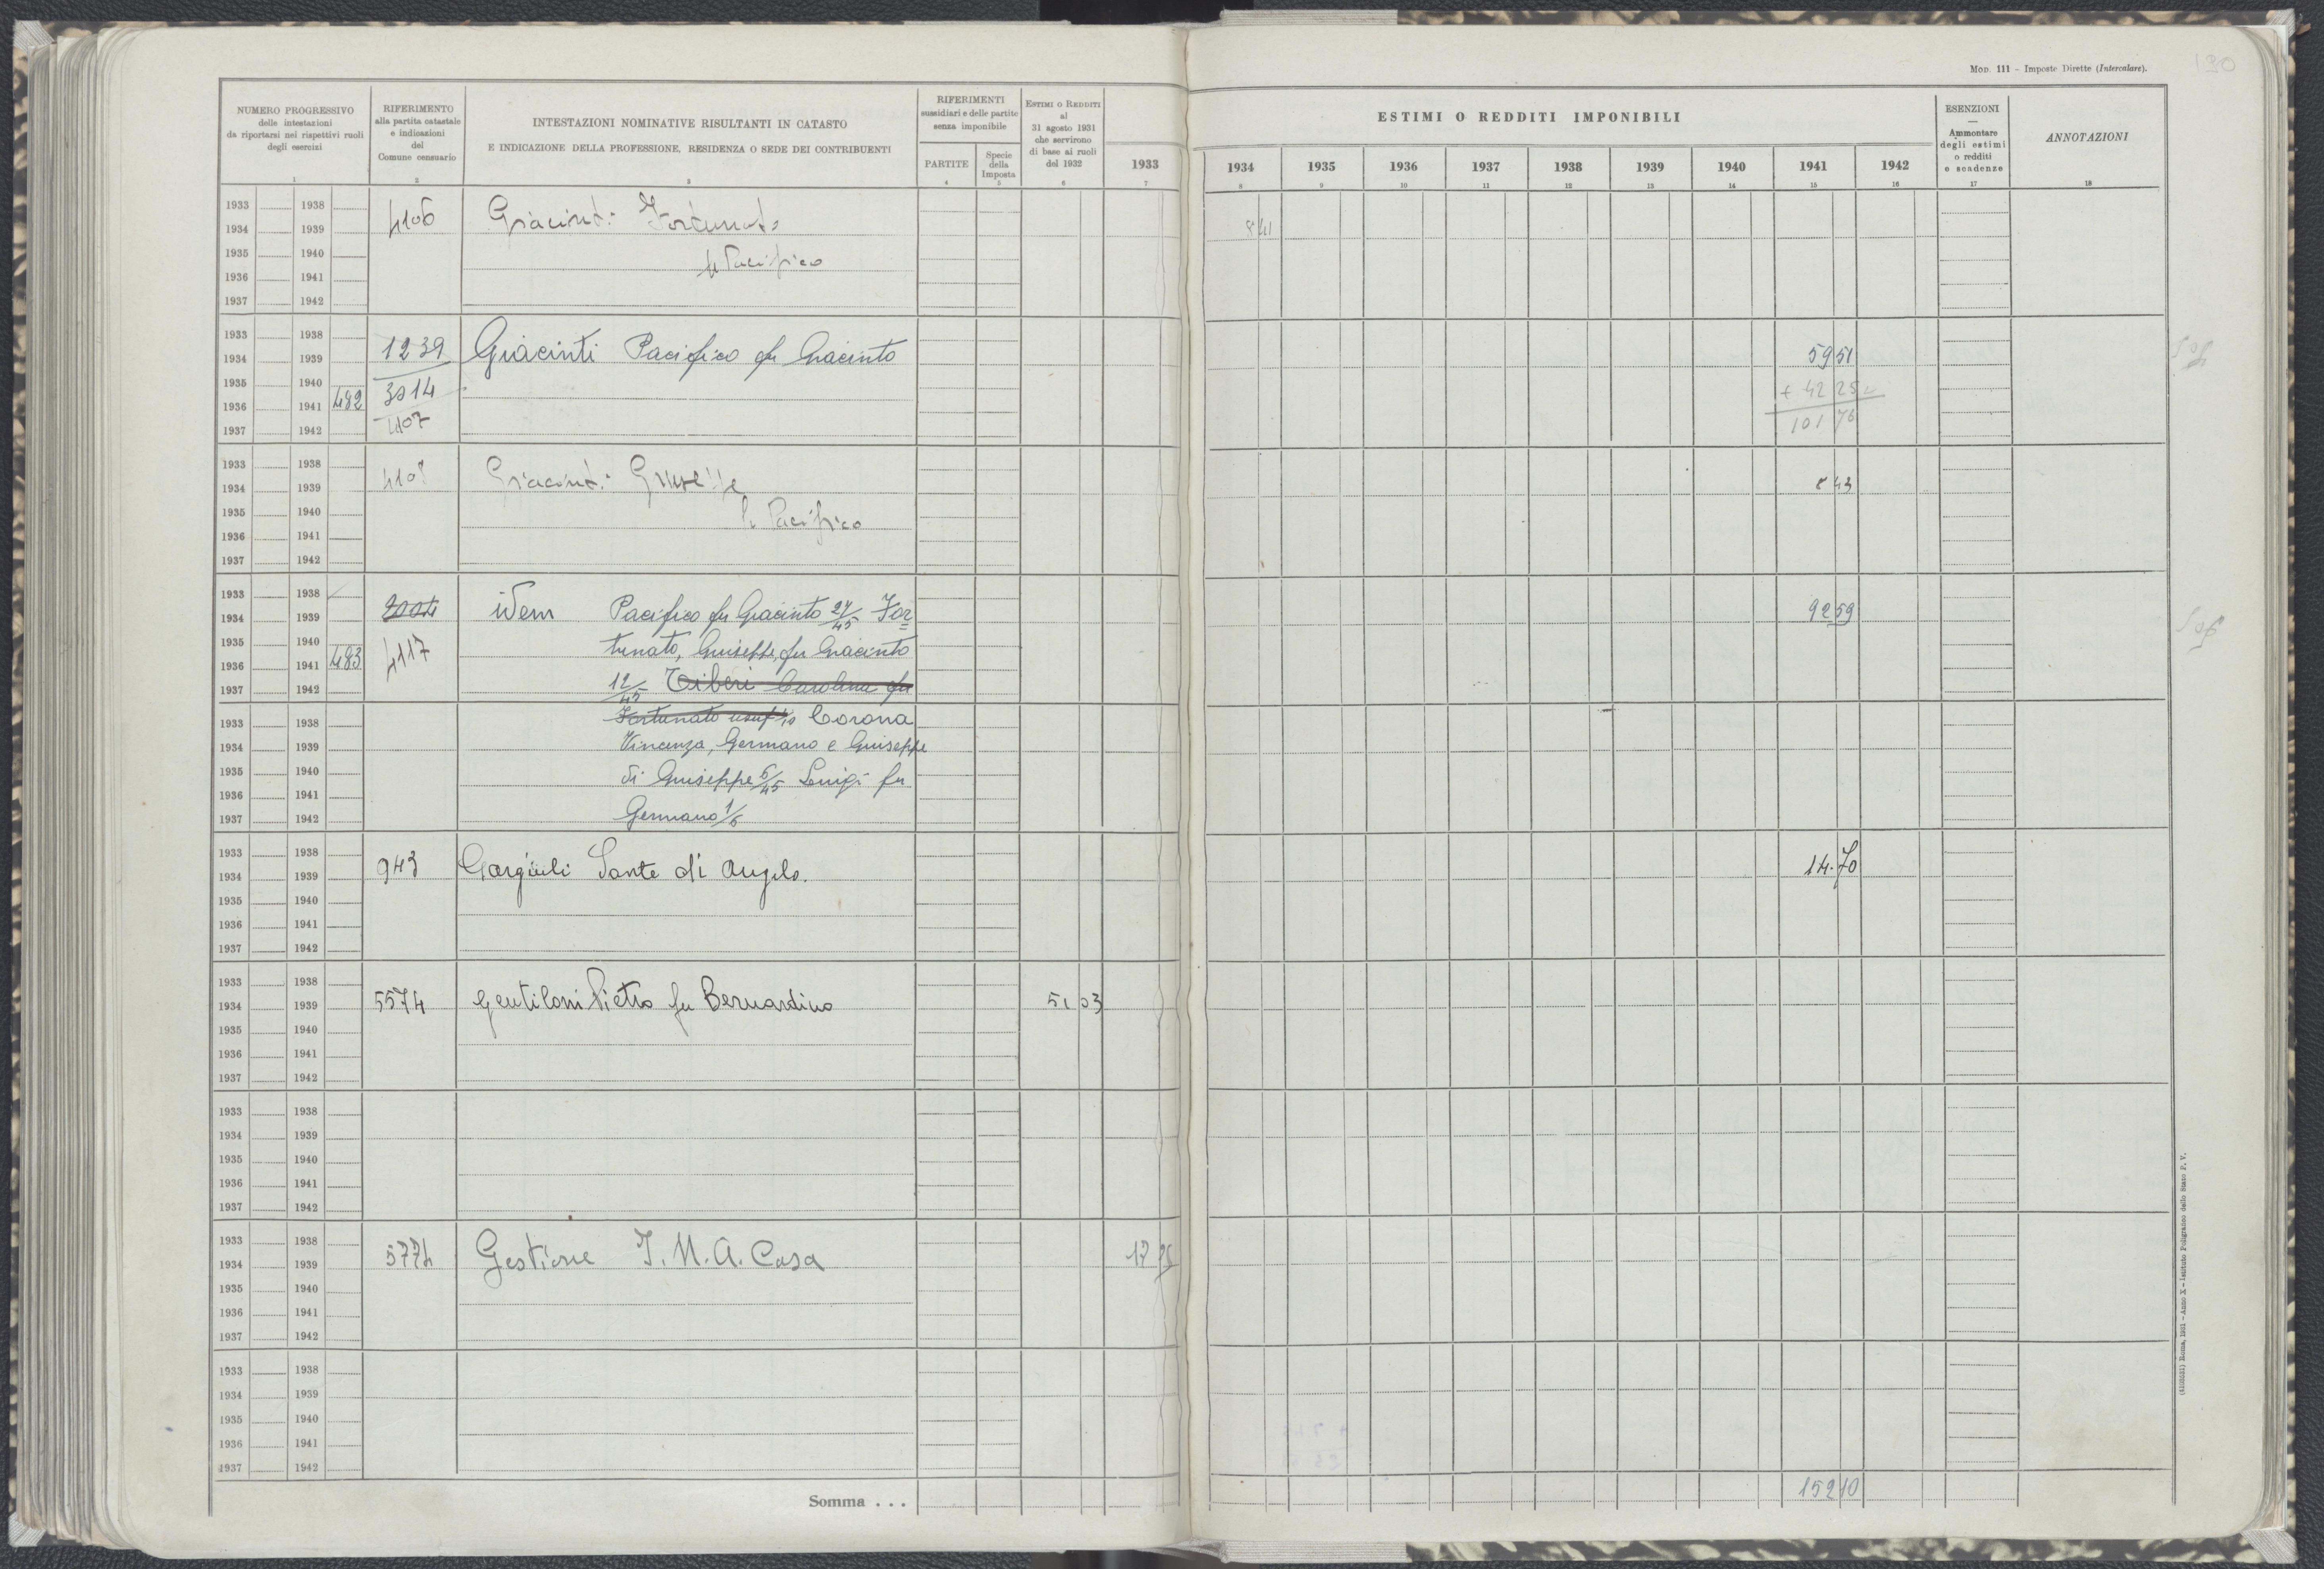 MOD. 111 - Imposte Dirette (Intercalare).
190
NUMERO PROGRESSIVO
delle intestazioni
da riportarsi nei rispettivi ruoli
degli esercizi
1
RIFERIMENTO
alla partita catastale
e indicazioni
del
Comune censuario
2
INTESTAZIONI NOMINATIVE RISULTANTI IN CATASTO
E INDICAZIONE DELLA PROFESSIONE, RESIDENZA O SEDE DEI CONTRIBUENTI
3
RIFERIMENTI
sussidiari e delle partite
senza imponibile
PARTITE
4
Specie
della
Imposta
5
ESTIMI O REDDITI
al
31 agosto 1931
che servirono
di base ai ruoli
del 1932
6
1933
7
ESTIMI O REDDITI IMPONIBILI
1934 1935 1936 1937 1938 1939 1940 1941 1942
8 9 10 11 12 13 14 15 16
ESENZIONI
—
Ammontare
degli estimi
o redditi
e scadenze
17
ANNOTAZIONI
18
1933 1938
1934 1939 4106 Giacinti Fortunato 8 41
1935 1940
fu Pacifico
1936 1941
1937 1942
1933 1938
1934 1939 1239 Giacinti Pacifico fu Giacinto 59 51
1935 1940 3014 + 42 25
1936 1941 482
1937 1942 4107 101 76
1933 1938
1934 1939 4108 Giacinti Giuseppe 8 43
1935 1940
fu Pacifico
1936 1941
1937 1942
1933 1938
1934 1939 idem Pacifico fu Giacinto 27/45 For 92 59
1935 1940
tunato, Giuseppe, fu Giacinto
1936 1941 483 4117
1937 1942 12/45 Tiberi Carolina fu
1933 1938 Fortunato usuf Corona
1934 1939 Vincenza, Germano e Giuseppe
1935 1940 di Giuseppe 6/45 Luigi fu
1936 1941
1937 1942 Germano 1/6
1933 1938
1934 1939 943 Gargiuli Sante di Angelo. 14.70
1935 1940
1936 1941
1937 1942
1933 1938
1934 1939 5574 Gentiloni Pietro fu Bernardino 51 03
1935 1940
1936 1941
1937 1942
1933 1938
1934 1939
1935 1940
1936 1941
1937 1942
1933 1938
1934 1939 5774 Gestione I.N.A. Casa 17
1935 1940
1936 1941
1937 1942
1933 1938
1934 1939
1935 1940
1936 1941
1937 1942
Somma . . . 152 10
(4103531) Roma, 1931 - Anno X - Istituto Poligrafico dello Stato P. V.